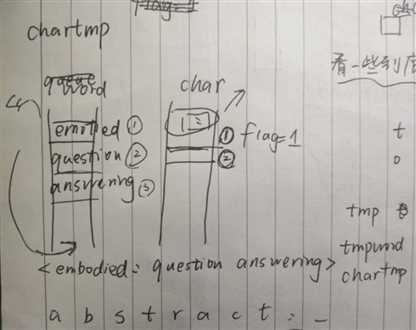 chartmp
word
char
emotied ①
question ②
answering ③
① flag=1
②
看一些到底
t
o
tmp
tmpword
chartmp
<embodied: question answering>
a b s t r a c t : _